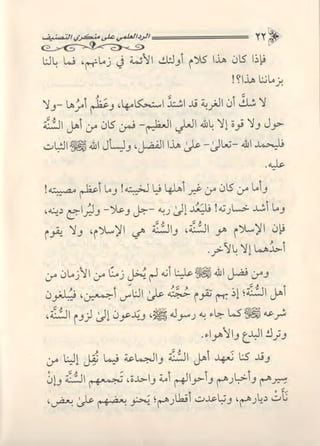 ٢٢ الرد العلمي على منكري التصنيف
فإذا كان هذا كلام أولئك الأئمة في زمانهم، فما بالنا
بزماننا هذا؟!
لا شك أن الغربة قد اشتدّ استحكامها، وعَظُم أمرُها -ولا
حول ولا قوة إلا بالله العلي العظيم- فمن كان من أهل السُّنَّة
فليحمد الله -تعالى- على هذا الفضل، وليسأل الله ﷻ الثبات
عليه.
وأما من كان من غير أهلها فيا لخيبته! وما أعظم مصيبته!
وما أشد خسارته! فليَعُد إلى ربه -جل وعلا- وليُراجع دينه،
فإن الإسلام هو السُّنَّة، والسُّنَّة هي الإسلام، ولا يقوم
أحدهما إلا بالآخر.
ومن فضل الله ﷻ علينا أنه لم يُخلِ زمنًا من الأزمان من
أهل السُّنَّة؛ إذ بهم تقوم حُجَّته على الناس أجمعين، فيُبلغون
شرعه ﷻ كما جاء به رسوله ﷺ، ويَدعون إلى لزوم السُّنَّة،
وترك البدع والأهواء.
وقد كنا نَعهد أهل السُّنَّة والجماعة فيما نُقِل إلينا من
سِيرهم وأخبارهم وأحوالهم أمة واحدة، تَجمعهم السُّنَّة وإنْ
نَأَتْ ديارهم، وتباعدت أقطارهم؛ يَحنو بعضهم على بعض،